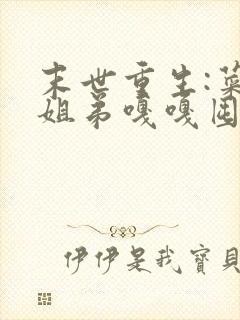 末世重生:
姐弟嘎嘎囤
伊伊是我寶貝